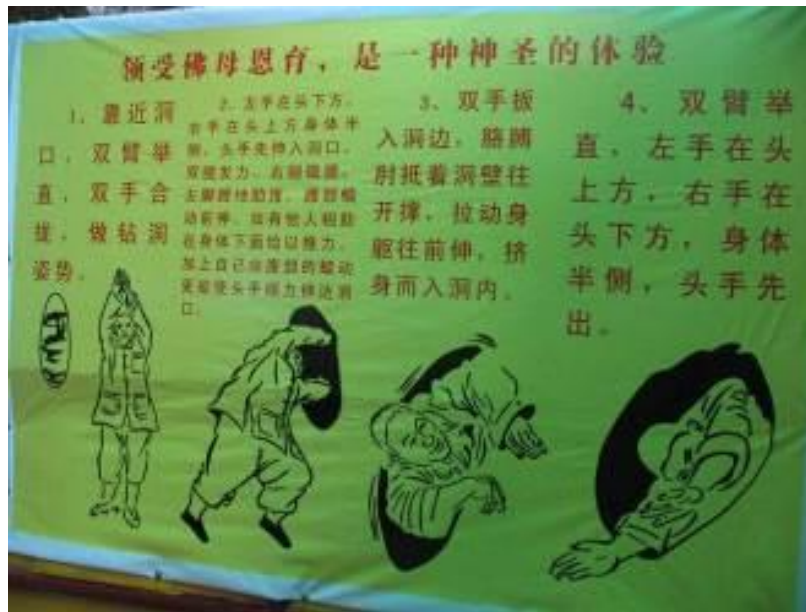 领受佛母恩育，是一种神圣的体验
1、靠近洞
口，双臂举
直，双手合
拢，做钻洞
姿势。
2、左手在头下方，
右手在头上方身体半
侧，头手先伸入洞口，
双腿发力，右脚
左脚蹬地助推，
动前伸，如有他人相助
在身体下面给以推力，
加上自己的蠕动
更能使头手顺力伸达洞
口。
3、双手扳
入洞边，胳膊
肘抵着洞壁往
开撑，拉动身
躯往前伸，挤
身而入洞内。
4、双臂举
直，左手在头
上方，右手在
头下方，身体
半侧，头手先
出。